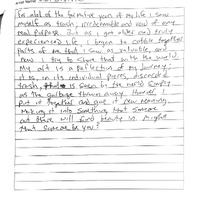 In most of the formative years of my life I saw
myself as trash, irredeemable and void of any
real purpose. But as I got older and truly
experienced life, I began to cobble together
parts of me that I saw as valuable, and
now I try to share that with the world.
My art is a reflection of my journey;
it is, in its individual pieces, discarded
trash, that is seen by the world simply
as the garbage thrown away. However I
put it together and give it new meaning.
Making it into something that someone
out there will find beauty in. Might
that someone be you?